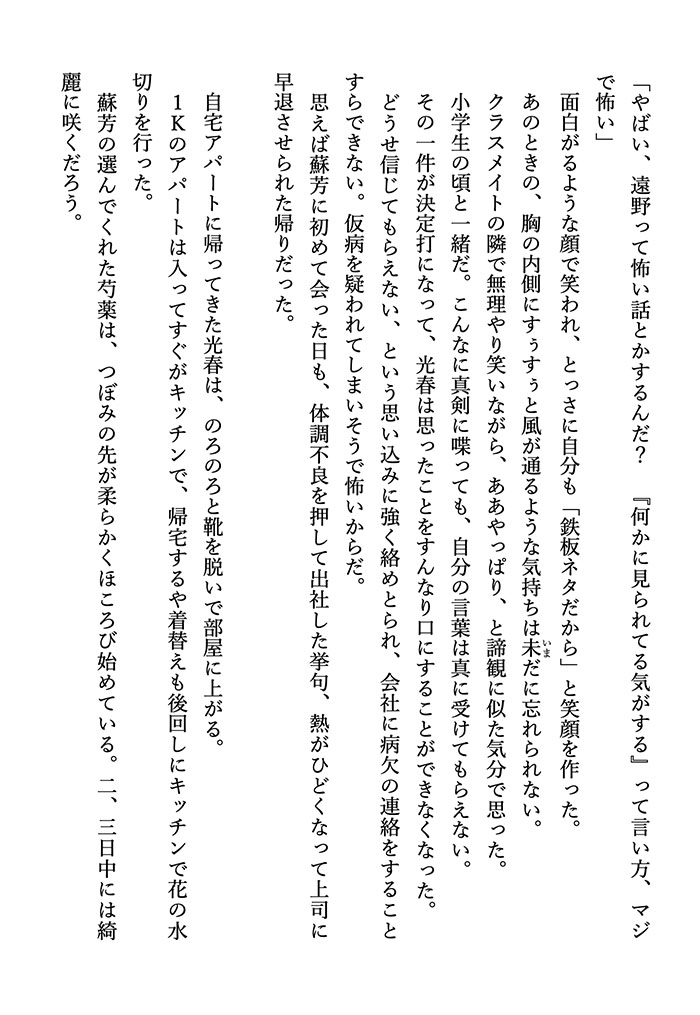 「やばい、遠野って怖い話とかするんだ？　『何かに見られてる気がする』って言い方、マジ
で怖い」
　面白がるような顔で笑われ、とっさに自分も「鉄板ネタだから」と笑顔を作った。
　あのときの、胸の内側にすぅすぅと風が通るような気持ちは未だに忘れられない。
いま
　クラスメイトの隣で無理やり笑いながら、ああやっぱり、と諦観に似た気分で思った。
　小学生の頃と一緒だ。こんなに真剣に喋っても、自分の言葉は真に受けてもらえない。
　その一件が決定打になって、光春は思ったことをすんなり口にすることができなくなった。
　どうせ信じてもらえない、という思い込みに強く絡めとられ、会社に病欠の連絡をすること
すらできない。仮病を疑われてしまいそうで怖いからだ。
　思えば蘇芳に初めて会った日も、体調不良を押して出社した挙句、熱がひどくなって上司に
早退させられた帰りだった。
　自宅アパートに帰ってきた光春は、のろのろと靴を脱いで部屋に上がる。
　１Ｋのアパートは入ってすぐがキッチンで、帰宅するや着替えも後回しにキッチンで花の水
切りを行った。
　蘇芳の選んでくれた芍薬は、つぼみの先が柔らかくほころび始めている。二、三日中には綺
麗に咲くだろう。